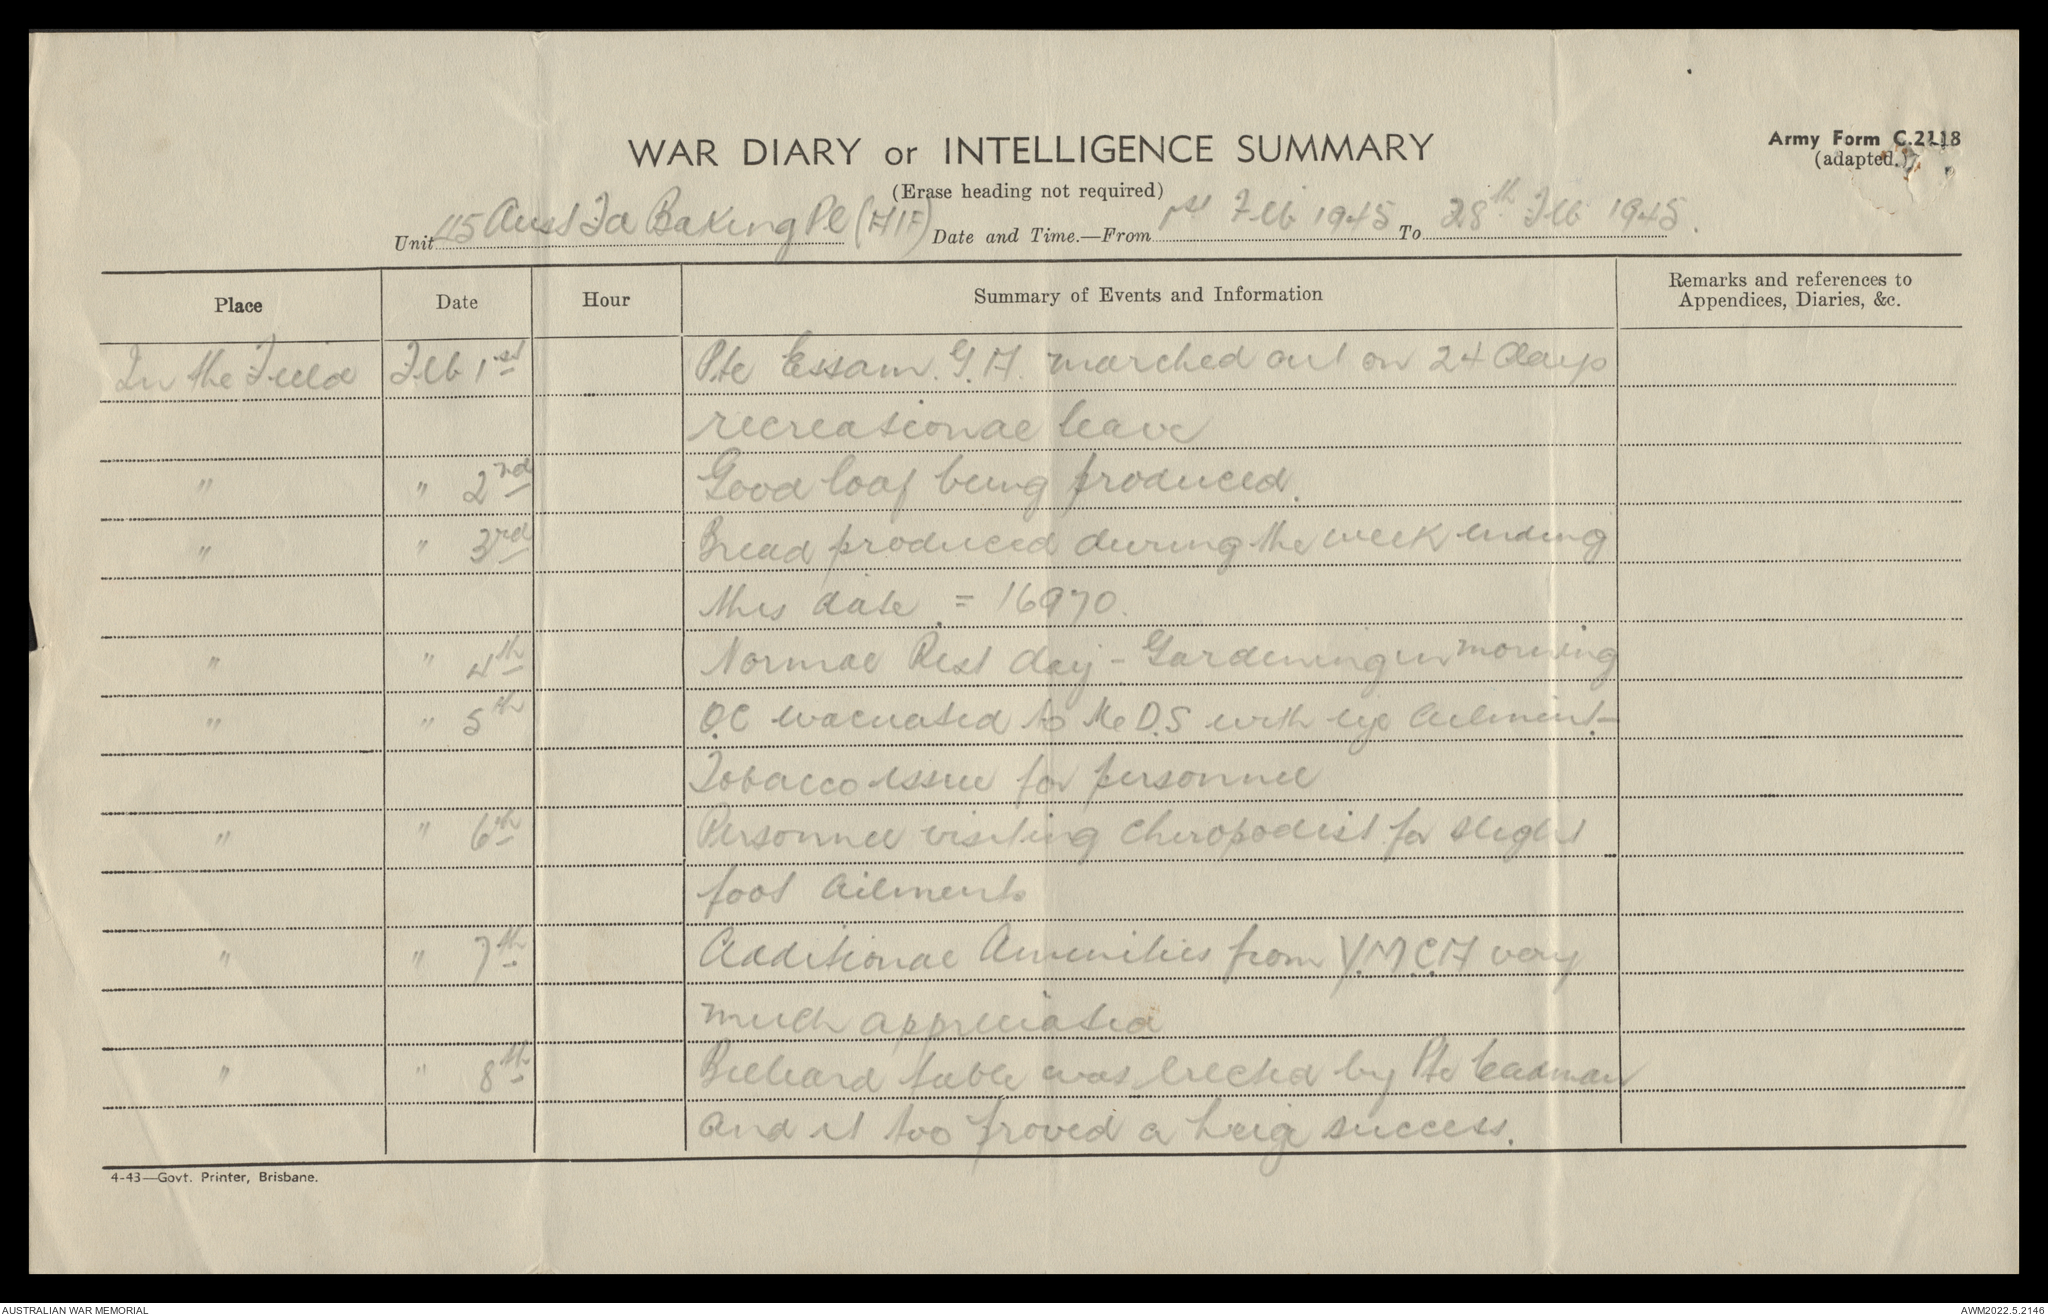 WAR DIARY or INTELLIGENCE SUMMARY
Army Form C.2118
(adapted.)
(Erase heading not required)
Unit 45 Aust Fd Baking Pl (AIF) Date and Time.—From 1st Feb 1945 To 28th Feb 1945.
Place Date Hour Summary of Events and Information Remarks and references to Appendices, Diaries, &c.
In the Field Feb 1st Pte Essam. G.H. marched out on 24 days
recreational leave
" " 2nd Good loaf being produced.
" " 3rd Bread produced during the week ending
this date = 16970.
" " 4th Normal Rest day - Gardening in morning
" " 5th O.C evacuated to M.D.S with eye ailment-
Tobacco issue for personnel
" " 6th Personnel visiting Chiropodist for slight
foot ailments
" " 7th Additional Amenities from Y.M.C.A very
much appreciated
" " 8th Billiard table was erected by Pte Cadman
and it too proved a huge success.
4-43—Govt. Printer, Brisbane.
AUSTRALIAN WAR MEMORIAL AWM2022.5.2146